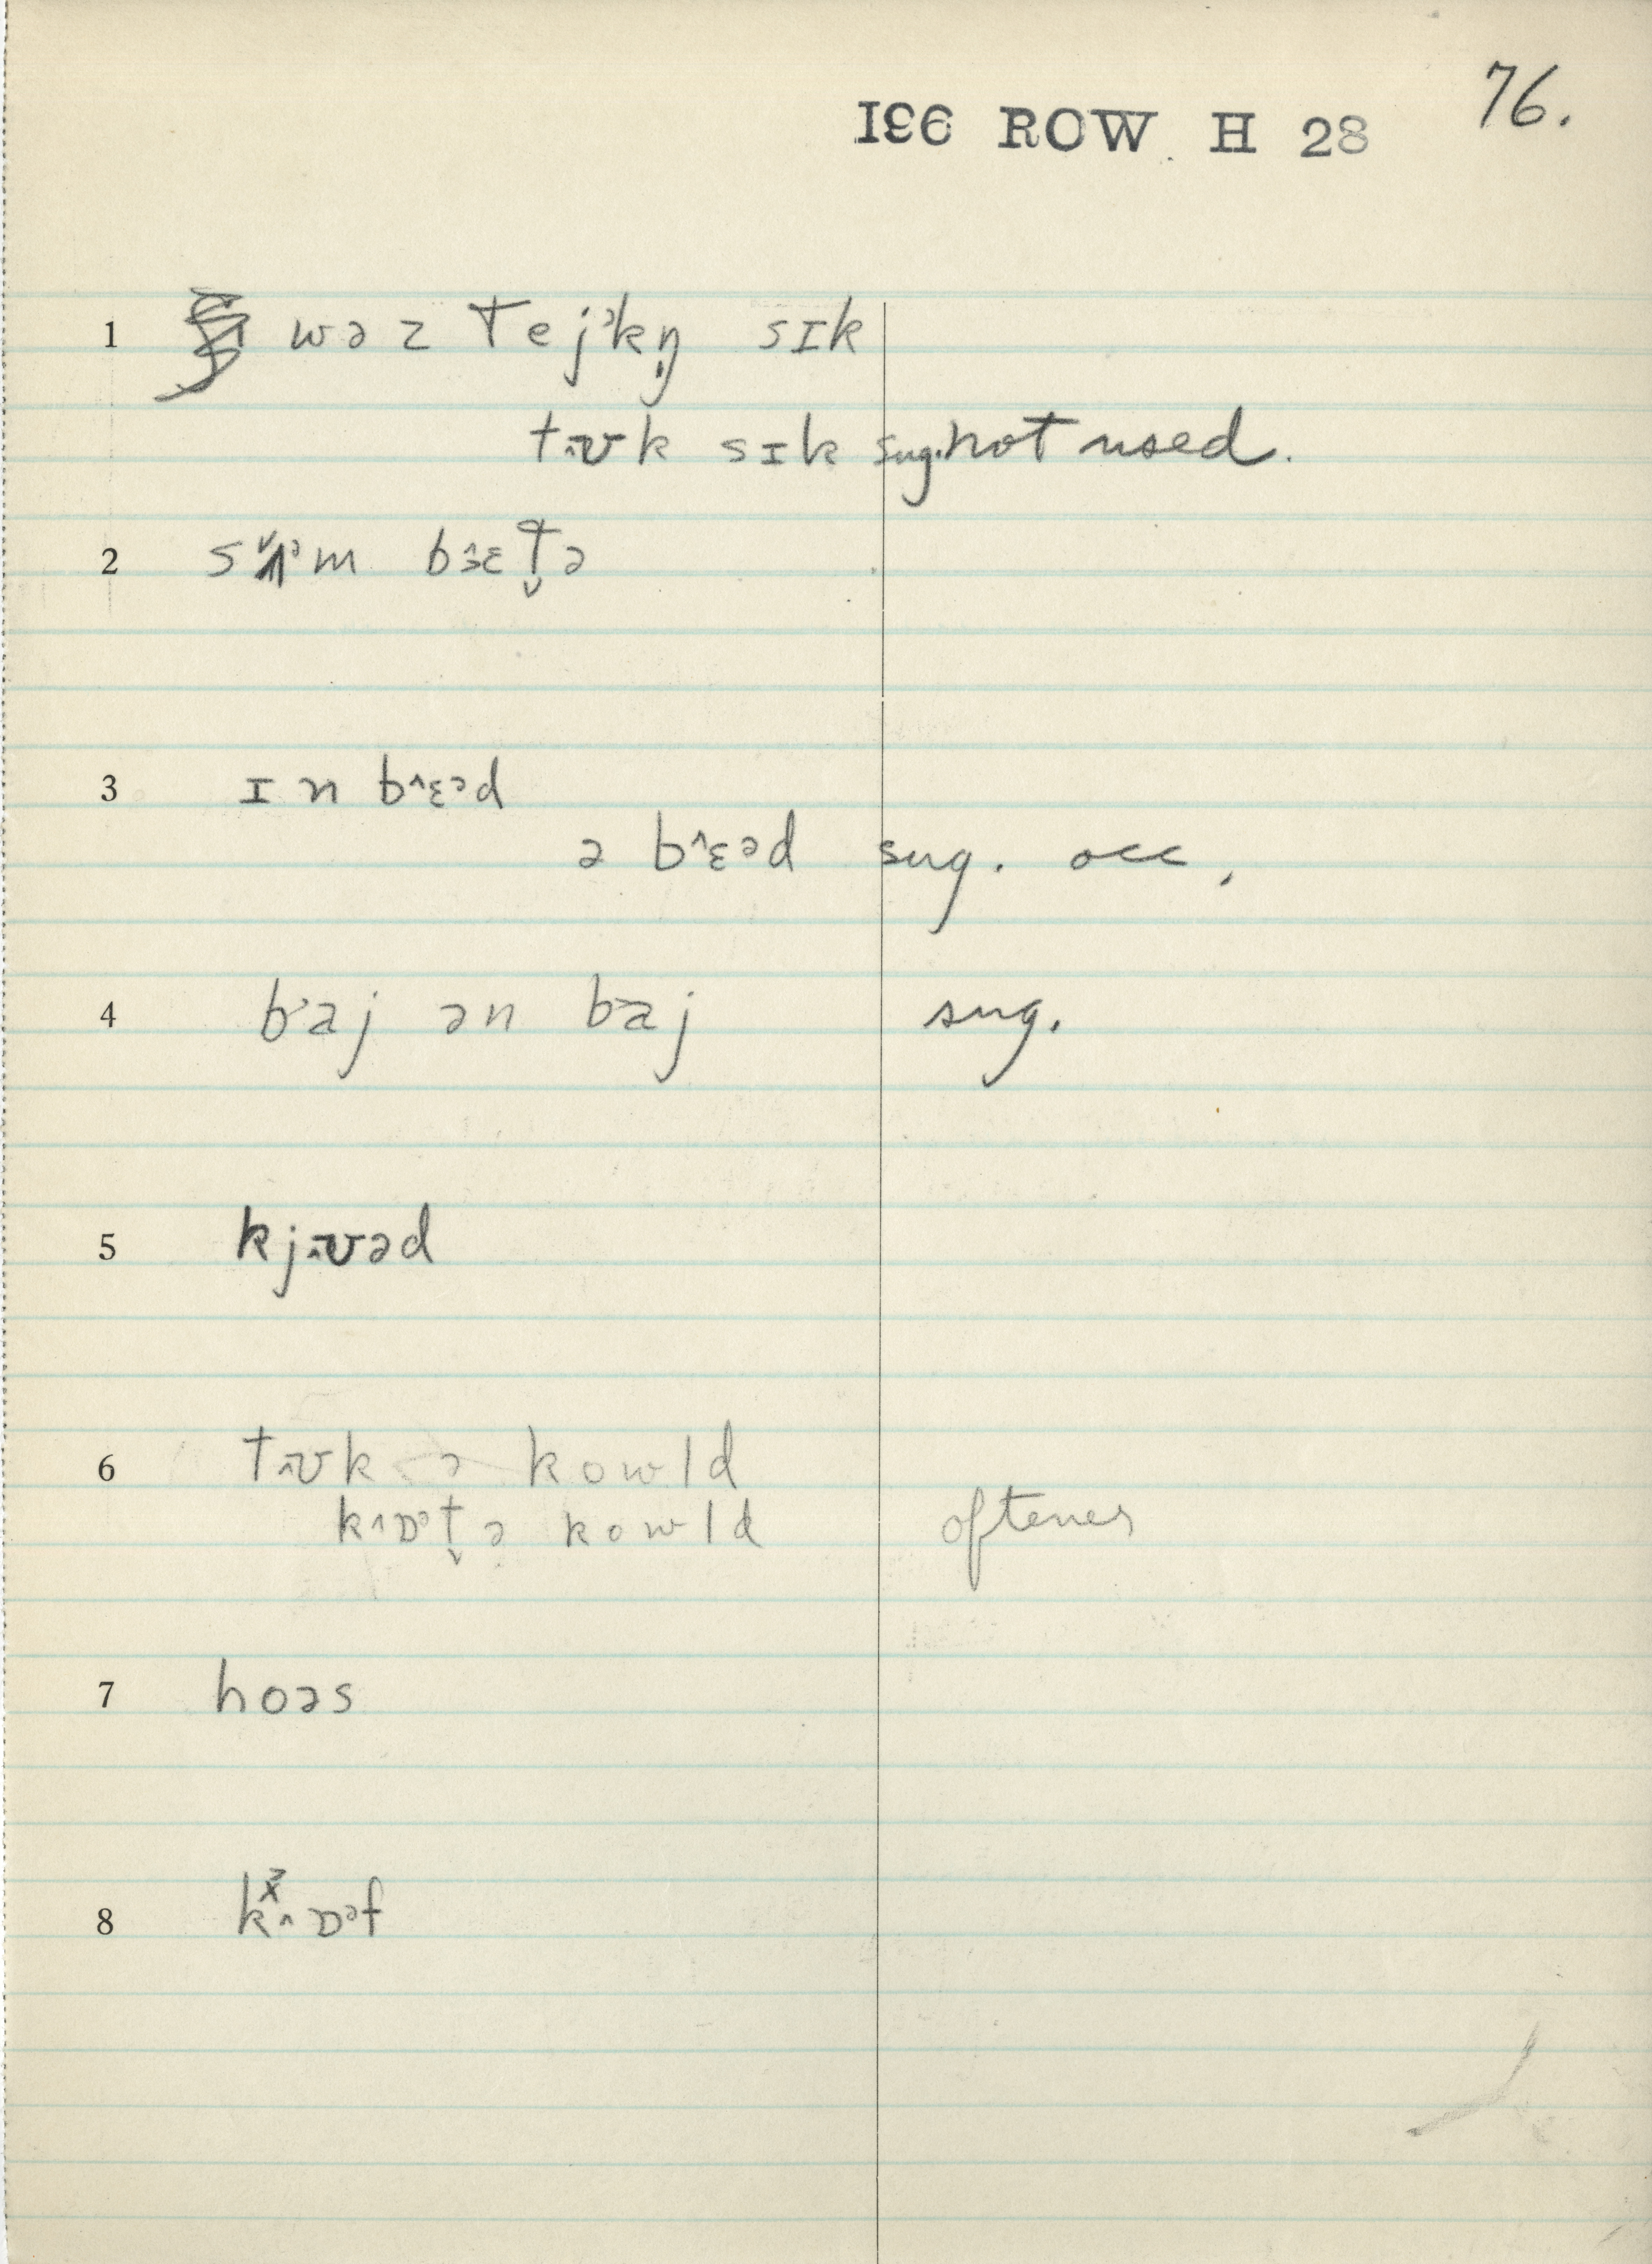 196 ROW H 28 76.
1 wəz tejᵊkŋ̩ sɪk
tʊk sɪk sug. not used.
2 bɜɛt̬ə
3 ɪn b^ɛᵊd
ə b^ɛᵊd sug. occ.
4 baj ən baj sug.
5 kjʊəd
6 tʊk ə kowld
k^ɒᵊt̬ə kowld oftener
7 hoəs
8 k^ɒᵊf